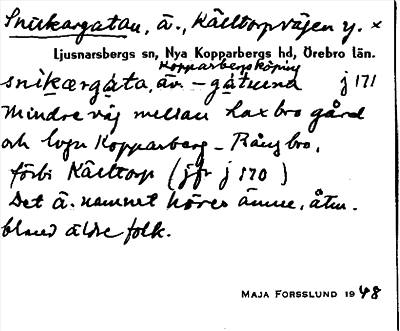 Snickargatan, ä., Källtorpvägen y. ×
Ljusnarsbergs sn, Nya Kopparbergs hd, Örebro län.
Kopparbergs köping
snikærgàta, äv. – gátuna j 171
Mindre väg mellan Laxbro gård
och byn Kopparberg – Rångbro,
förbi Källtorp (jfr j 170 )
Det ä. namnet höres ännu, åtm.
bland äldre folk.
MAJA FORSSLUND 1948